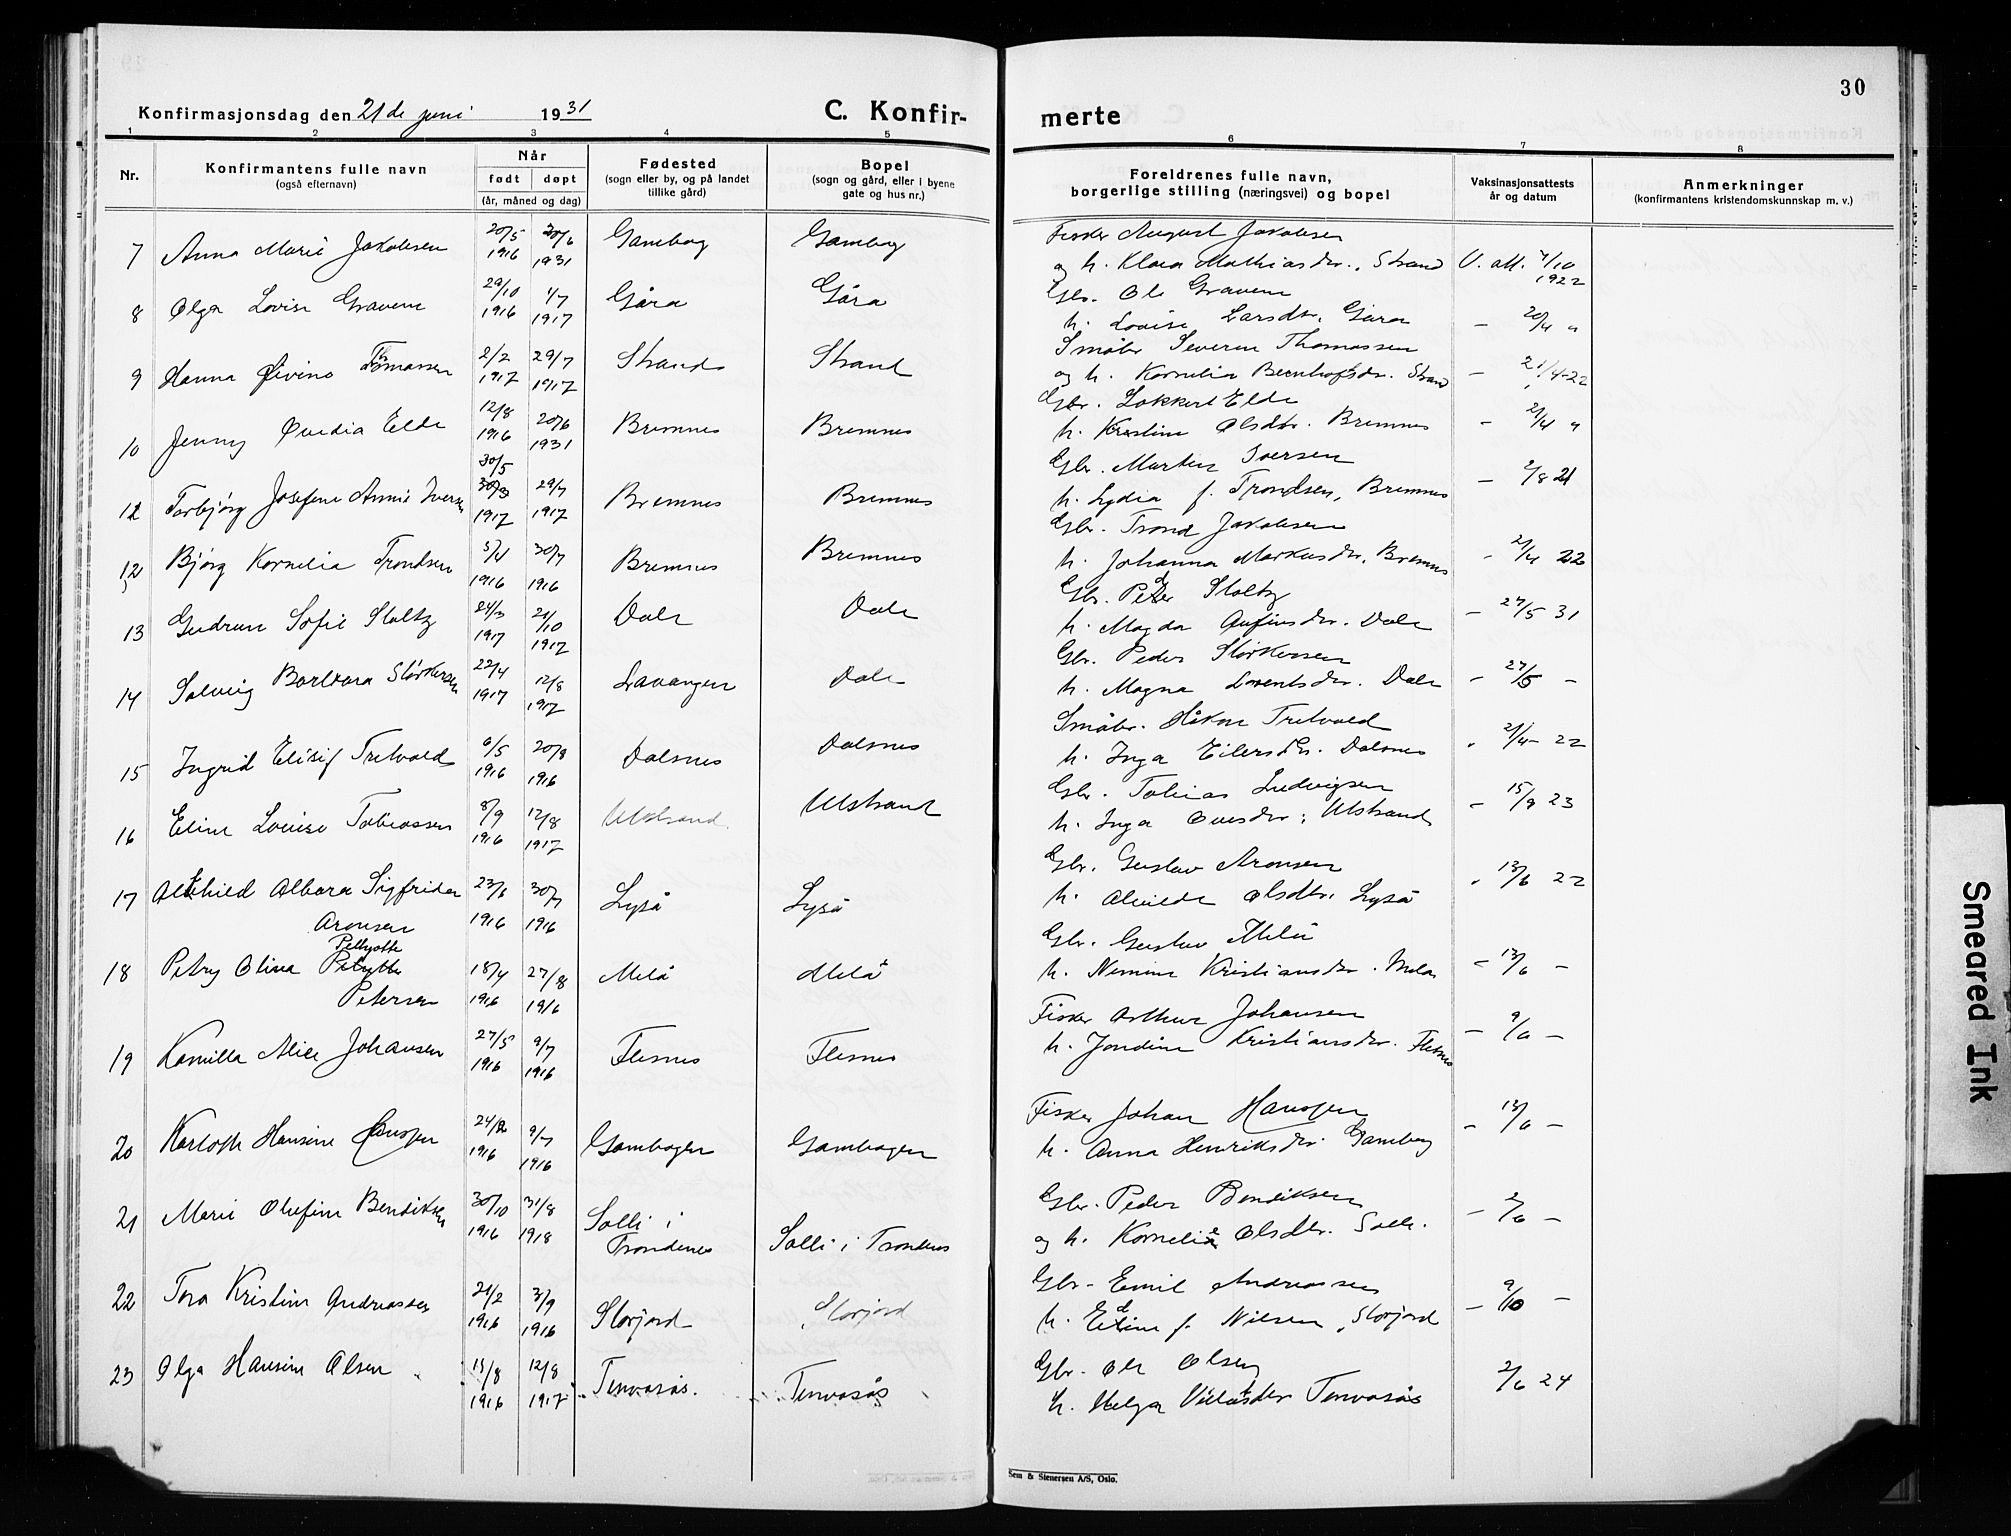 30
Konfirmasjonsdag den 21de juni 1931
C. Konfir-
merte
1 2 3 4 5 6 7 8
Nr.
Konfirmantens fulle navn
(også efternavn)
Når
født døpt
(år, måned og dag)
Fødested
(sogn eller by, og på landet
tillike gård)
Bopel
(sogn og gård, eller i byene
gate og hus nr.)
Foreldrenes fulle navn,
borgerlige stilling (næringsvei) og bopel
Vaksinasjonsattests
år og datum
Anmerkninger
(konfirmantens kristendomskunnskap m. v.)
7 Anna Marie Jakobsen 20/5 1916 20/6 1931 Gambog Gambog
Fisker August Jakobsen
og h. Klara Mathiasdtr., Strand V. att. 1/10 1922
8 Olga Lovise Gravem 29/10 1916 1/7 1917 Gåra Gåra
Gbr. Ole Gravem
h. Lovise Larsdtr. Gåra - 20/4 "
9 Hanna Øivine Tomassen 2/2 1917 29/7 1917 Strand Strand
Småbr. Severin Thomassen
og h. Kornelia Bernhoftsdr. Strand - 21/4-22
10 Jenny Ovedia Elde 12/8 1916 20/6 1931 Bremnes Bremnes
Gbr. Lokkert Elde
h. Kristine Olsdtr. Bremnes - 21/4 "
11 Torbjørg Josefine Annie Iversen 30/5 1917 29/7 1917 Bremnes Bremnes
Gbr. Morten Iversen
h. Lydia f. Trondsen, Bremnes - 2/8 21
12 Bjørg Kornelia Trondsen 5/4 1916 30/7 1916 Bremnes Bremnes
Gbr. Trond Jakobsen
h. Johanna Markusdtr, Bremnes - 21/4 22
13 Gudrun Sofie Stoltz 24/3 1917 21/10 1917 Dale Dale
Gbr. Peder Stoltz
h. Magda Anfinsdtr. Dale - 27/5 31
14 Solveig Barbara Størkersen 22/4 1917 12/8 1917 Lavangen Dale
Gbr. Peder Størkersen
h. Magna Lorentsdtr. Dale - 27/5 -
15 Ingrid Elisif Tretvold 6/5 1916 20/8 1916 Dalsnes Dalsnes
Småbr. Håkon Tretvold
h. Inga Eilersdtr. Dalsnes " 21/4- 22
16 Eline Louise Tobiassen 8/9 1916 12/8 1917 Ulstrand Ulstrand
Gbr. Tobias Ludvigsen
h. Inga Ovesdtr; Ulstrand - 15/9 23
17 Althild Albara Sigfrida 23/6 1916 30/7 1916 Lyså Lyså
Aronsen
Gbr. Gustav Aronsen
h. Alvilde Olsdtr, Lyså " 13/6 22
Pethyotte
18 Petry Olina Petytte 18/4 1916 27/8 1916 Melå Melå
Petersen
Gbr. Gustav Melå
h. Nemine Kristiansdtr. Mela - 13/6 -
19 Kamilla Alice Johansen 27/5 1916 9/7 1916 Flesnes Flesnes
Fisker Arthur Johansen
h. Jondine Kristiansdtr. Flesnes - 9/6 -
20 Karloth Hansine Hanssen 24/2 1916 9/7 1916 Gambogen Gambogen
Fisker Johan Hanssen
h. Anna Henriksdtr. Gambog - 13/6 -
21 Marie Olufine Bendiksen 30/10 1916 31/8 1918 Solli i Trondenes Solli i Trondenes
Gbr. Peder Bendiksen
og h. Kornelie Olsdtr. Solli. - 2/6 -
22 Tora Kristine Andreassen 21/2 1916 3/9 1916 Storjord Storjord
Gbr- Emil Andreassen
h. Edine f. Nilsen, Storjord - 9/10 -
23 Olga Hansine Olsen 15/8 1916 12/8 1917 Tenvasås. Tenvasås
Gbr Ole Olsen
h. Helga Tenvasås 2/6 24
Sem & Stenersen A/S, Oslo.
Smeared Ink